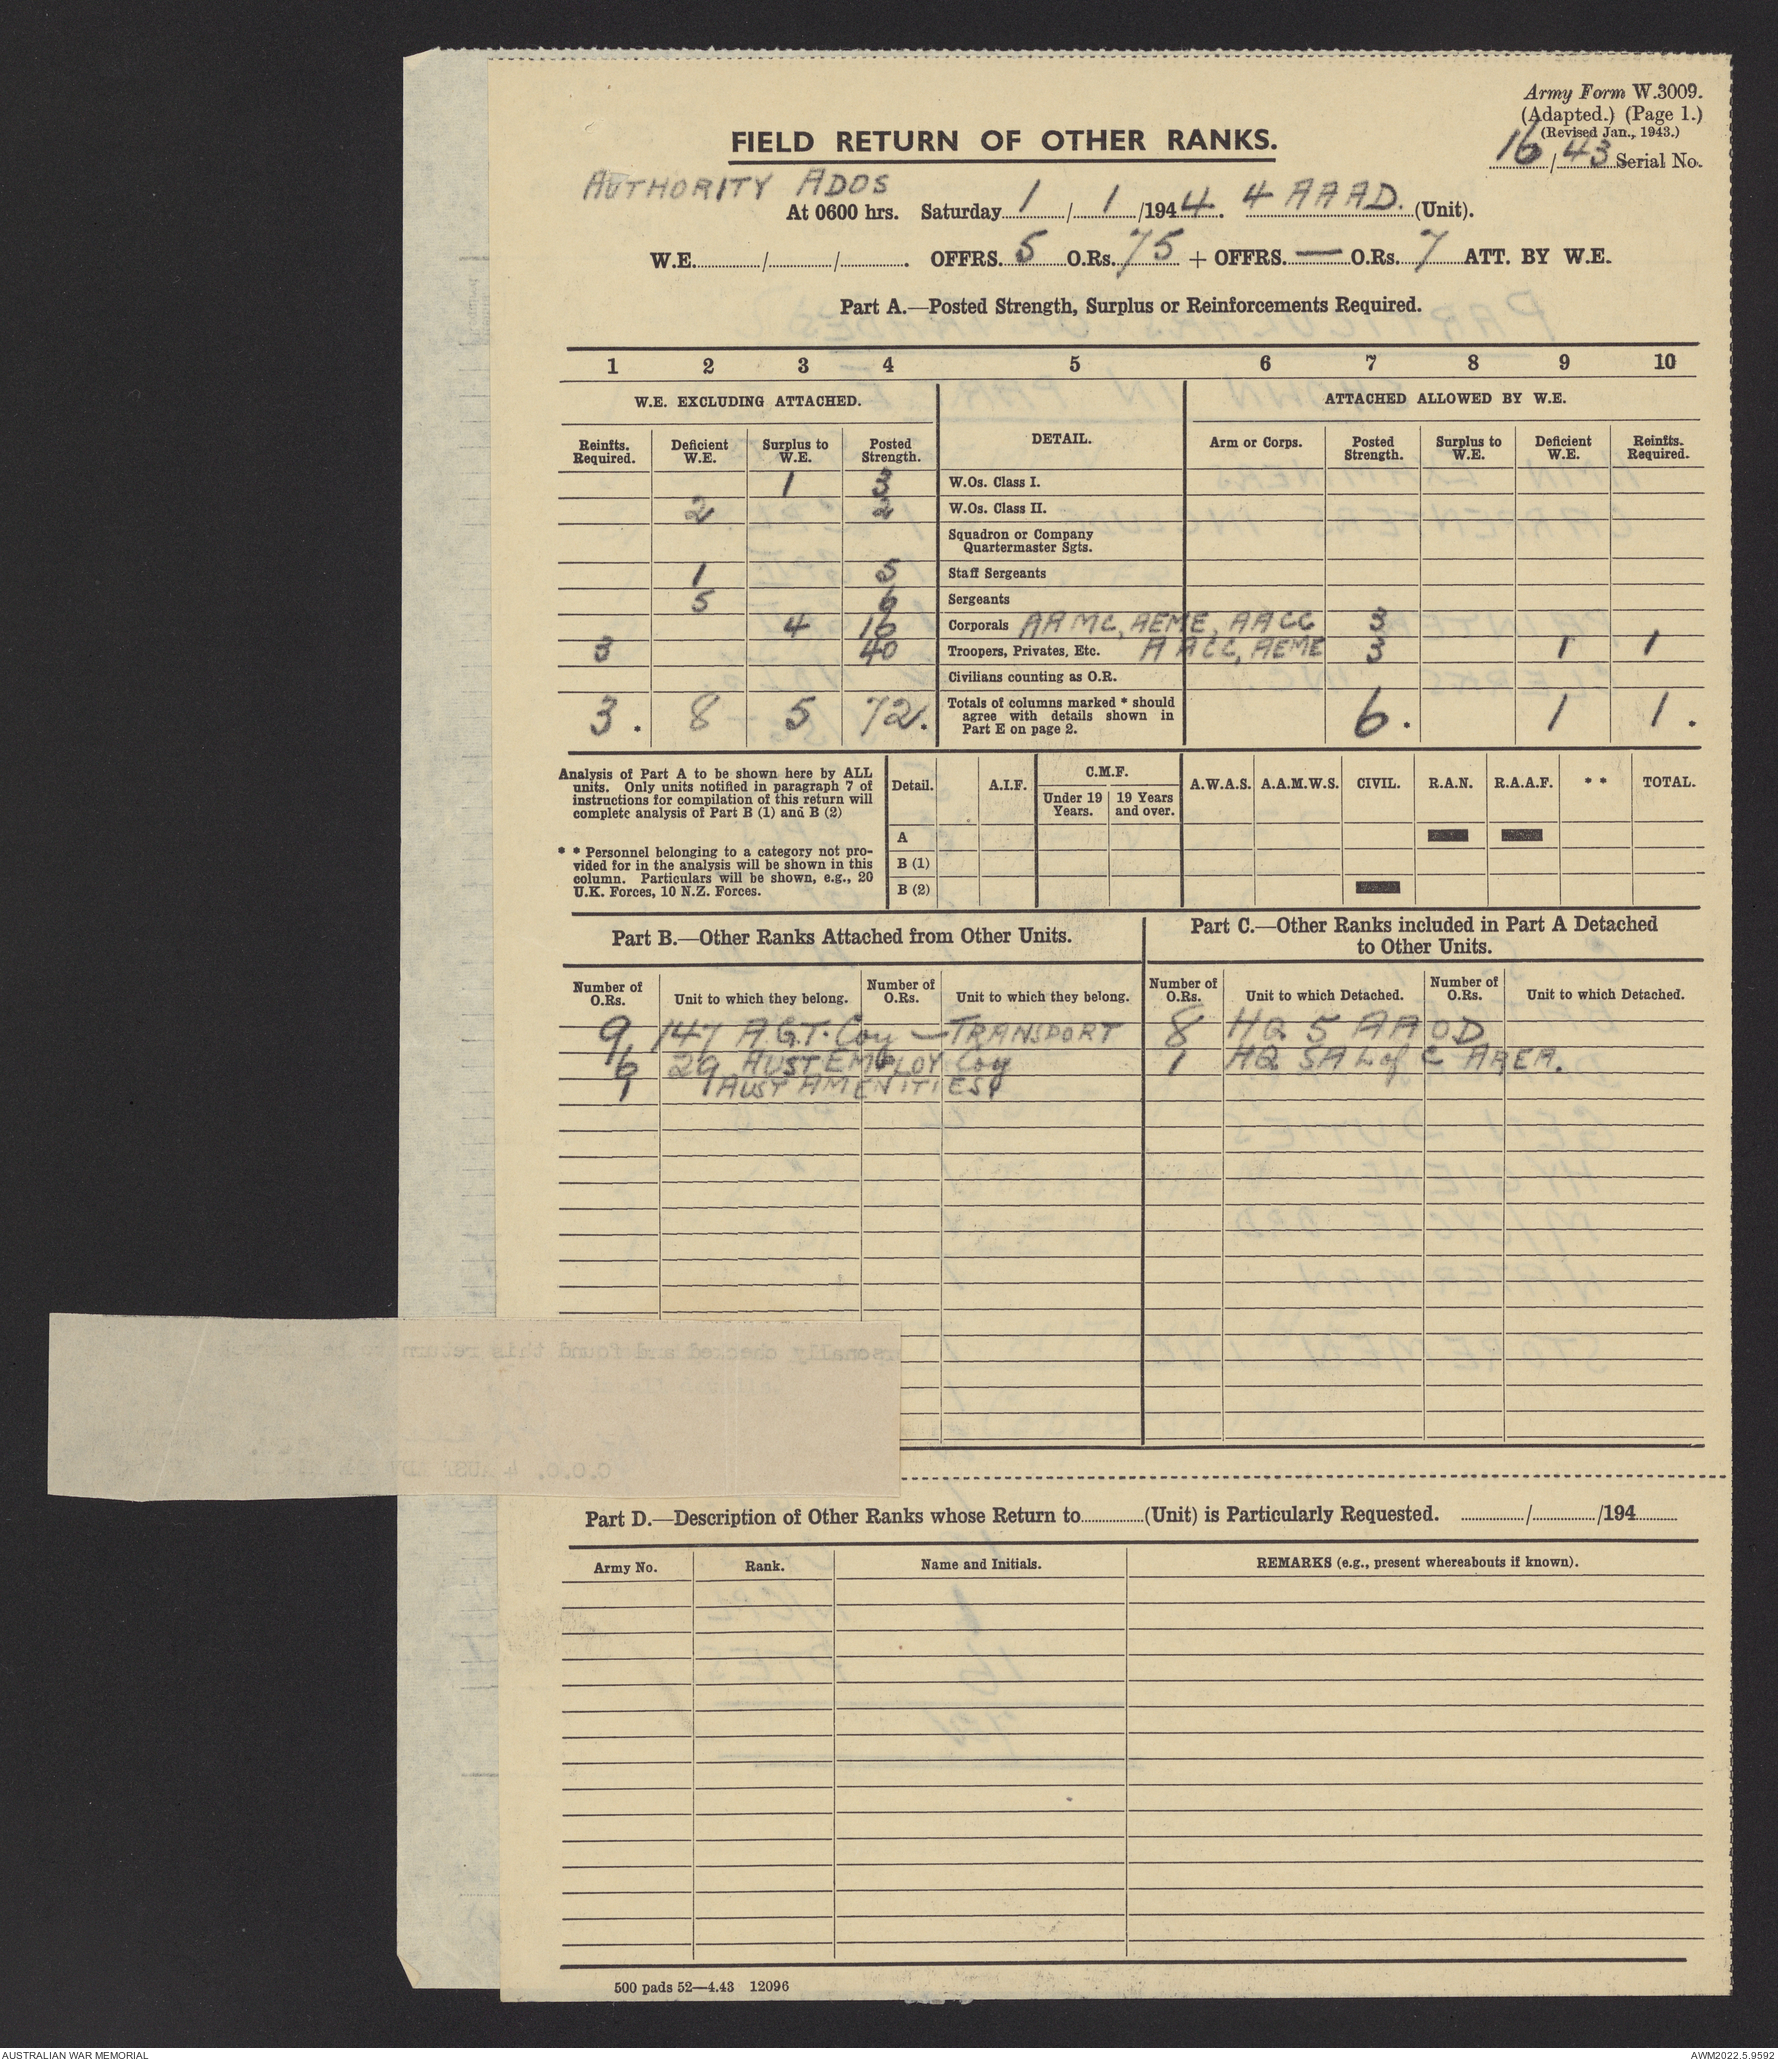 Army Form W.3009.
(Adapted.) (Page 1.)
(Revised Jan., 1943.)
16/43 Serial No.
FIELD RETURN OF OTHER RANKS.
AUTHORITY ADOS
At 0600 hrs. Saturday 1/1/1944. 4 AAAD. (Unit).
W.E. / / . OFFRS. 5 O.Rs. 75 + OFFRS. — O.Rs. 7 ATT. BY W.E.
Part A.—Posted Strength, Surplus or Reinforcements Required.
1 2 3 4 5 6 7 8 9 10
W.E. EXCLUDING ATTACHED. DETAIL. ATTACHED ALLOWED BY W.E.
Reinfts. Required. Deficient W.E. Surplus to W.E. Posted Strength. Arm or Corps. Posted Strength. Surplus to W.E. Deficient W.E. Reinfts. Required.
1 3 W.Os. Class I.
2 2 W.Os. Class II.
Squadron or Company
Quartermaster Sgts.
1 5 Staff Sergeants
5 6 Sergeants
4 16 Corporals AAMC, AEME, AACC 3
3 40 Troopers, Privates, Etc. AACC, AEME 3 1 1
Civilians counting as O.R.
3. 8 5 72. Totals of columns marked * should agree with details shown in Part E on page 2. 6. 1 1.
Analysis of Part A to be shown here by ALL
units. Only units notified in paragraph 7 of
instructions for compilation of this return will
complete analysis of Part B (1) and B (2)
* * Personnel belonging to a category not pro-
vided for in the analysis will be shown in this
column. Particulars will be shown, e.g., 20
U.K. Forces, 10 N.Z. Forces.
Detail. A.I.F. C.M.F. A.W.A.S. A.A.M.W.S. CIVIL. R.A.N. R.A.A.F. * * TOTAL.
Under 19 Years. 19 Years and over.
A
B (1)
B (2)
Part B.—Other Ranks Attached from Other Units.
Number of O.Rs. Unit to which they belong. Number of O.Rs. Unit to which they belong.
9 147 A.G.T. Coy — TRANSPORT
6 29 AUST EMPLOY Coy
1 AUST AMENITIES
Part C.—Other Ranks included in Part A Detached
to Other Units.
Number of O.Rs. Unit to which Detached. Number of O.Rs. Unit to which Detached.
8 HQ 5 AAOD
1 HQ SA L of C AREA.
Part D.—Description of Other Ranks whose Return to (Unit) is Particularly Requested. / /194
Army No. Rank. Name and Initials. REMARKS (e.g., present whereabouts if known).
500 pads 52—4.43 12096
AUSTRALIAN WAR MEMORIAL
AWM2022.5.9592